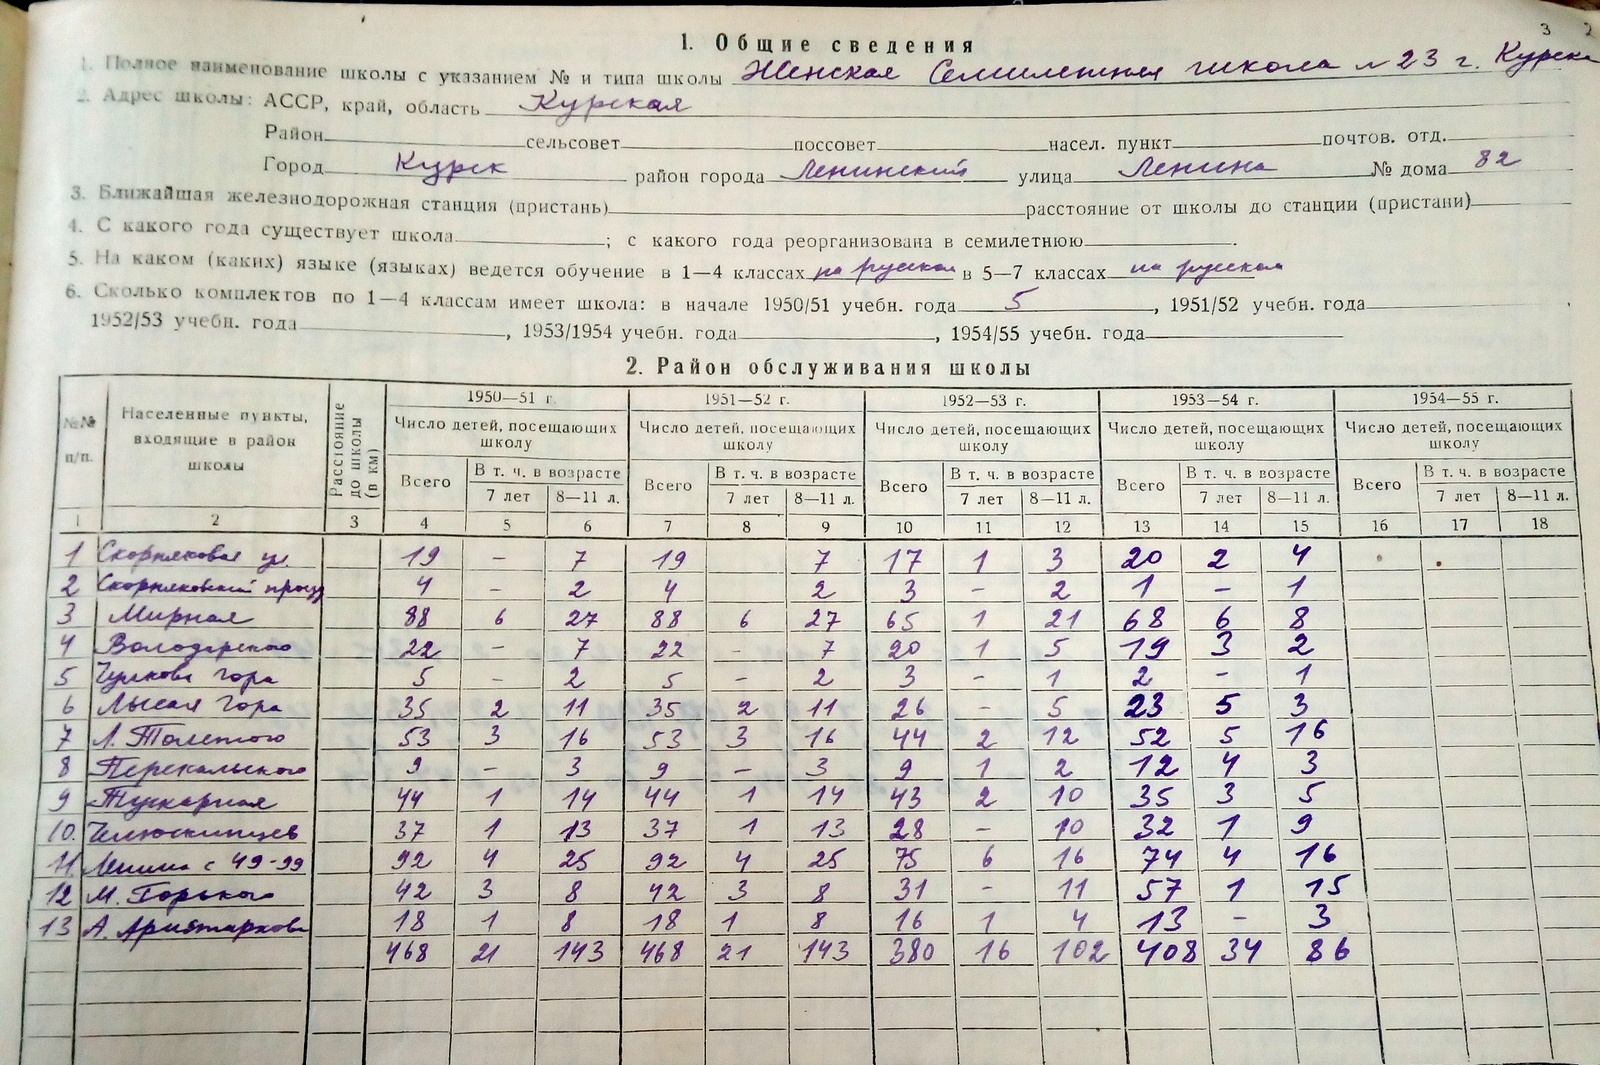 3 2
1. Общие сведения
1. Полное наименование школы с указанием № и типа школы Женская Семилетняя школа № 23 г. Курска
2. Адрес школы: АССР, край, область Курская
Район сельсовет поссовет насел. пункт почтов. отд.
Город Курск район города Ленинский улица Ленина № дома 82
3. Ближайшая железнодорожная станция (пристань) расстояние от школы до станции (пристани)
4. С какого года существует школа ; с какого года реорганизована в семилетнюю .
5. На каком (каких) языке (языках) ведется обучение в 1—4 классах на русском в 5—7 классах на русском
6. Сколько комплектов по 1—4 классам имеет школа: в начале 1950/51 учебн. года 5 , 1951/52 учебн. года ,
1952/53 учебн. года , 1953/1954 учебн. года , 1954/55 учебн. года
2. Район обслуживания школы
№№ п/п. Населенные пункты, входящие в район школы Расстояние до школы (в км) 1950—51 г. 1951—52 г. 1952—53 г. 1953—54 г. 1954—55 г.
Число детей, посещающих школу Число детей, посещающих школу Число детей, посещающих школу Число детей, посещающих школу Число детей, посещающих школу
Всего В т. ч. в возрасте Всего В т. ч. в возрасте Всего В т. ч. в возрасте Всего В т. ч. в возрасте Всего В т. ч. в возрасте
7 лет 8—11 л. 7 лет 8—11 л. 7 лет 8—11 л. 7 лет 8—11 л. 7 лет 8—11 л.
1 2 3 4 5 6 7 8 9 10 11 12 13 14 15 16 17 18
1 Скорняковая ул 19 – 7 19 7 17 1 3 20 2 4
2 Скорняковский проезд 4 – 2 4 2 3 – 2 1 – 1
3 Мирная 88 6 27 88 6 27 65 1 21 68 6 8
4 Володарского 22 – 7 22 - 7 20 1 5 19 3 2
5 Чулкова гора 5 - 2 5 - 2 3 – 1 2 - 1
6 Лысая Гора 35 2 11 35 2 11 26 – 5 23 5 3
7 Л. Толстого 53 3 16 53 3 16 44 2 12 52 5 16
8 Перекальского 9 – 3 9 – 3 9 1 2 12 4 3
9 Тускарная 44 1 14 44 1 14 43 2 10 35 3 5
10. Челюскинцев 37 1 13 37 1 13 28 – 10 32 1 9
11. Ленина с 49-99 92 4 25 92 4 25 75 6 16 74 4 16
12 М. Горького 42 3 8 42 3 8 31 - 11 57 1 15
13 А. Аристархова 18 1 8 18 1 8 16 1 4 13 – 3
468 21 143 468 21 143 380 16 102 408 34 86